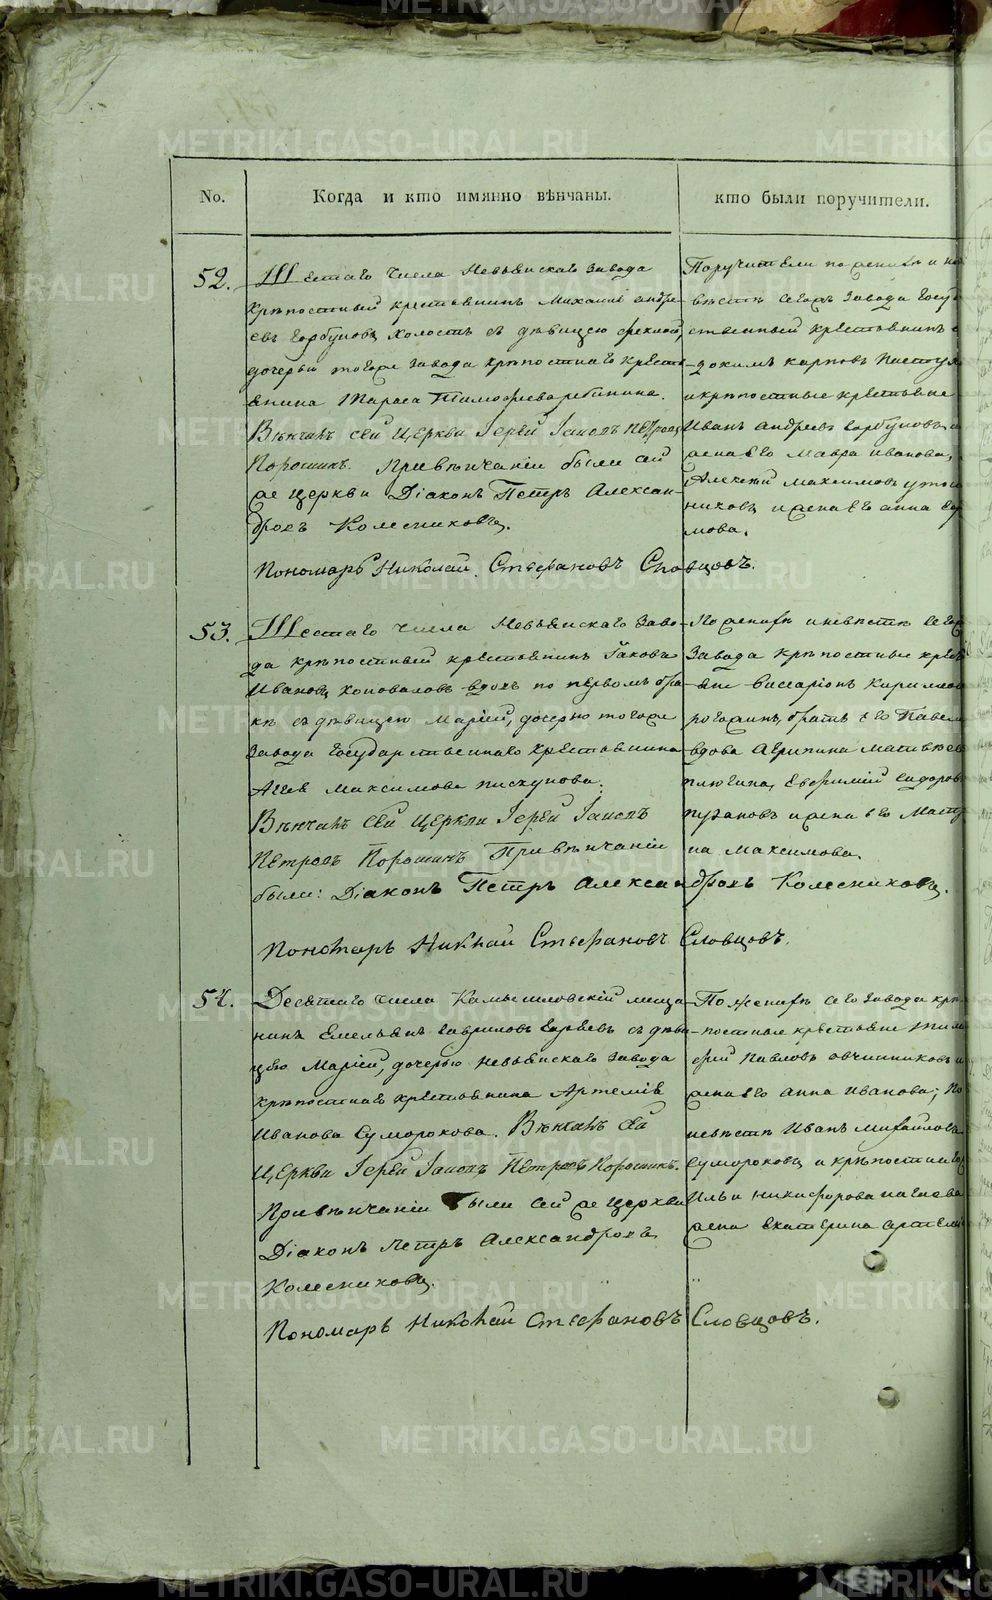 No.
Когда и кто имянно вѣнчаны.
кто были поручители.
52.
Шестаго числа Невьянскаго завода
крѣпостный крестьянинъ Михаилъ Андре-
евъ Горбуновъ холостъ съ дѣвицею
дочерью тогоже завода крѣпостнаго кресть-
янина Тараса Тимофеева
Вѣнчалъ сей Церкви Іерей Іаковъ Петровъ
Порошинъ. При вѣнчаніи были сей
же церкви Діаконъ Петръ Алексан-
дровъ Колесниковъ.
Пономарь Николай Стефановъ Словцовъ.
Поручители по женихѣ и не-
вѣстѣ сегожъ завода Госуд
ственный крестьянинъ
докимъ Карповъ
и крѣпостные крестьяне
Иванъ Андреевъ Горбуновъ и
жена его Мавра Иванова,
Алексій Максимовъ
никовъ и жена его Анна
мова.
53.
Шестаго числа Невьянскаго заво-
да крѣпостный крестьянинъ Іаковъ
Ивановъ Коноваловъ вдовъ по первомъ бра-
кѣ съ дѣвицею Маріей, дочерью тогоже
завода Государственнаго крестьянина
Максимова Пискунова.
Вѣнчалъ сей Церкви Іерей Іаковъ
Петровъ Порошинъ При вѣнчаніи
были: Діаконъ Петръ Александровъ Колесниковъ.
Пономарь Николай Стефановъ Словцовъ.
По женихѣ и невѣстѣ сегож
завода крѣпостные крест
яне Виссаріонъ Кириллов
братъ его Павел
вдова Агрипина Матвѣев
Евфимій Сидоров
Пузановъ и жена его Мат
на Максимова.
54.
Десятаго числа Камышловскій меща-
нинъ Емельянъ Гавриловъ съ дѣви-
цею Маріей, дочерью Невьянскаго завода
крѣпостнаго крестьянина Артемія
Иванова Суморокова. Вѣнчалъ сей
Церкви Іерей Іаковъ Петровъ Порошинъ.
При вѣнчаніи были сей же церкви
Діаконъ Петръ Александровъ
Колесниковъ.
Пономарь Николай Стефановъ Словцовъ.
По женихѣ сего завода крѣ-
постные крестьяне Тимо
фей Павловъ Овчинниковъ и
жена его Анна Иванова; По
невѣстѣ Иванъ Михайлов
Сумороковъ и крѣпостнаго
Ильи Никифорова
жена Екатерина Артемі
METRIKI.GASO-URAL.RU